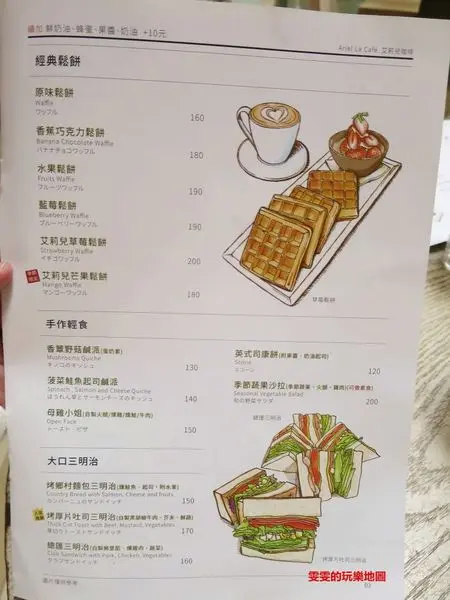 加 鮮奶油、蜂蜜、果醬、奶油 +10元
Ariel Le Café. 艾莉兒咖啡
經典鬆餅
原味鬆餅
Waffle
ワッフル
160
香蕉巧克力鬆餅
Banana Chocolate Waffle
バナナチョコワッフル
180
水果鬆餅
Fruits Waffle
フルーツワッフル
190
藍莓鬆餅
Blueberry Waffle
ブルーベリーワッフル
190
艾莉兒草莓鬆餅
Strawberry Waffle
イチゴワッフル
200
艾莉兒芒果鬆餅
Mango Waffle
マンゴーワッフル
180
草莓鬆餅
手作輕食
香蕈野菇鹹派(蛋奶素)
Mushrooms Quiche
キノコのキッシュ
130
菠菜鮭魚起司鹹派
Spinach, Salmon and Cheese Quiche
ほうれん草とサーモンチーズのキッシュ
140
母雞小姐(自製火腿/燻雞/燻鮭/牛肉)
Open Face
トースト・ピザ
150
英式司康餅(附果醬、奶油起司)
Scone
スコーン
120
季節蔬果沙拉(季節蔬果、火腿、雞肉)(可做素食)
Seasonal Vegetable Salad
旬の野菜サラダ
200
大口三明治
總匯三明治
烤鄉村麵包三明治(燻鮭魚、起司、附水果)
Country Bread with Salmon, Cheese and fruits
カンパーニュのサンドイッチ
150
烤厚片吐司三明治(自製黑胡椒牛肉、芥末、鮮蔬)
Thick Cut Toast with Beef, Mustard, Vegetables
厚切りトーストサンドイッチ
170
總匯三明治
Club Sandwich with Ham, Chicken, Vegetables
クラブサンドイッチ
160
烤厚片吐司三明治
圖片僅供參考
03
雯雯的玩樂地圖